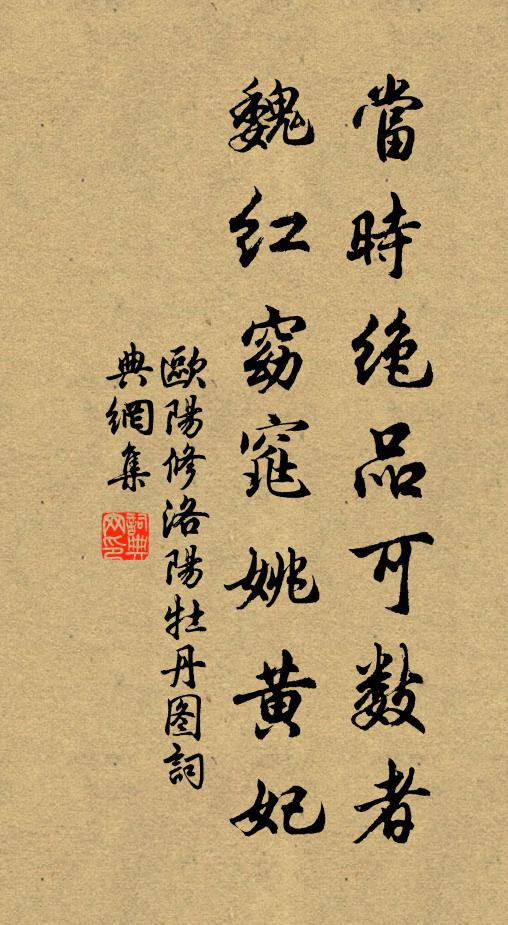 當時絶品可数者
魏红窈窕姚黄妃
歐陽修洛陽牡丹图詞
典網集
詞典
网印